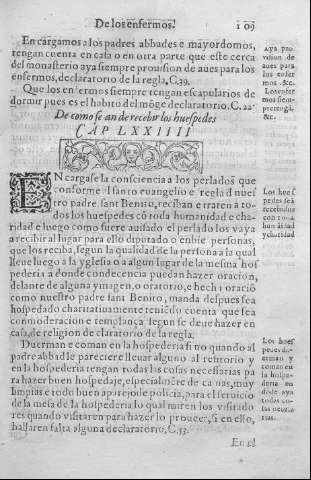 De los enfermos.
109
En cargamos a los padres abbades e mayordomos,
tengan cuenta en casa o en otra parte que este cerca
del monasterio aya siempre prouision de aues para los
enfermos, declaratorio de la regla, C.39.
Que los enfermos siempre tengan escapularios de
dormir pues es el habito del mõge declaratorio. C. 22.
Aya pro
uision de
aues para
los enfer
mos &c.
Los enfer
mos siem-
pre tengã,
&c.
De como se an de recebir los huespedes
CAP LXXIIII
ENcargase la consciencia a los perlados que
conforme al santo euangelio e regla d nuestro
tro padre sant Benito, reciban e traten a to-
dos los huespedes cõ toda humanidad e cha-
ridad e luego como fuere auisado el perlado los vaya
a recibir al lugar para ello diputado o enbie personas,
que los reciba, segun la qualidad de la persona a la qual
lleue luego a la yglesia o a algun lugar de la mesma hos
pederia a donde condecencia puedan hazer oracion,
delante de alguna ymagen, o oratorio, e hecha oracio
como nuestro padre sant Benito, manda despues sea
hospedado charitatiuamente teniẽdo cuenta que sea
con moderacion e templança segun se deue hazer en
casa, de religion declaratorio de la regla.
Los hues
pedes seã
recebidos
con toda
humanidad
y charidad
Duerman e coman en la hospederia si no quando al
padre abbad le pareciere lleuar alguno al refitorio y
en la hospederia tengan todas las cosas necessarias pa
ra hazer buen hospedaje, especialmẽte de camas, muy
limpias e todo buen aparejo de policia, para el seruicio
de la mesa de la hospederia lo qual miren los visitado
res quando visitaren para hazer lo proueer, si en ello,
hallaren falta alguna declaratorio. C. 53.
Los hues
pedes du-
erman y
coman en
la hospe-
deria en
dõde aya
todas co-
sas necessa
rias.
En el